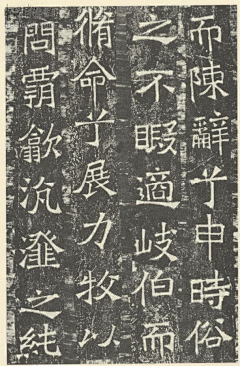 而陳辭兮申時俗
之不暇適岐伯而
脩命兮展力牧以
問霸歙沆瀣之純